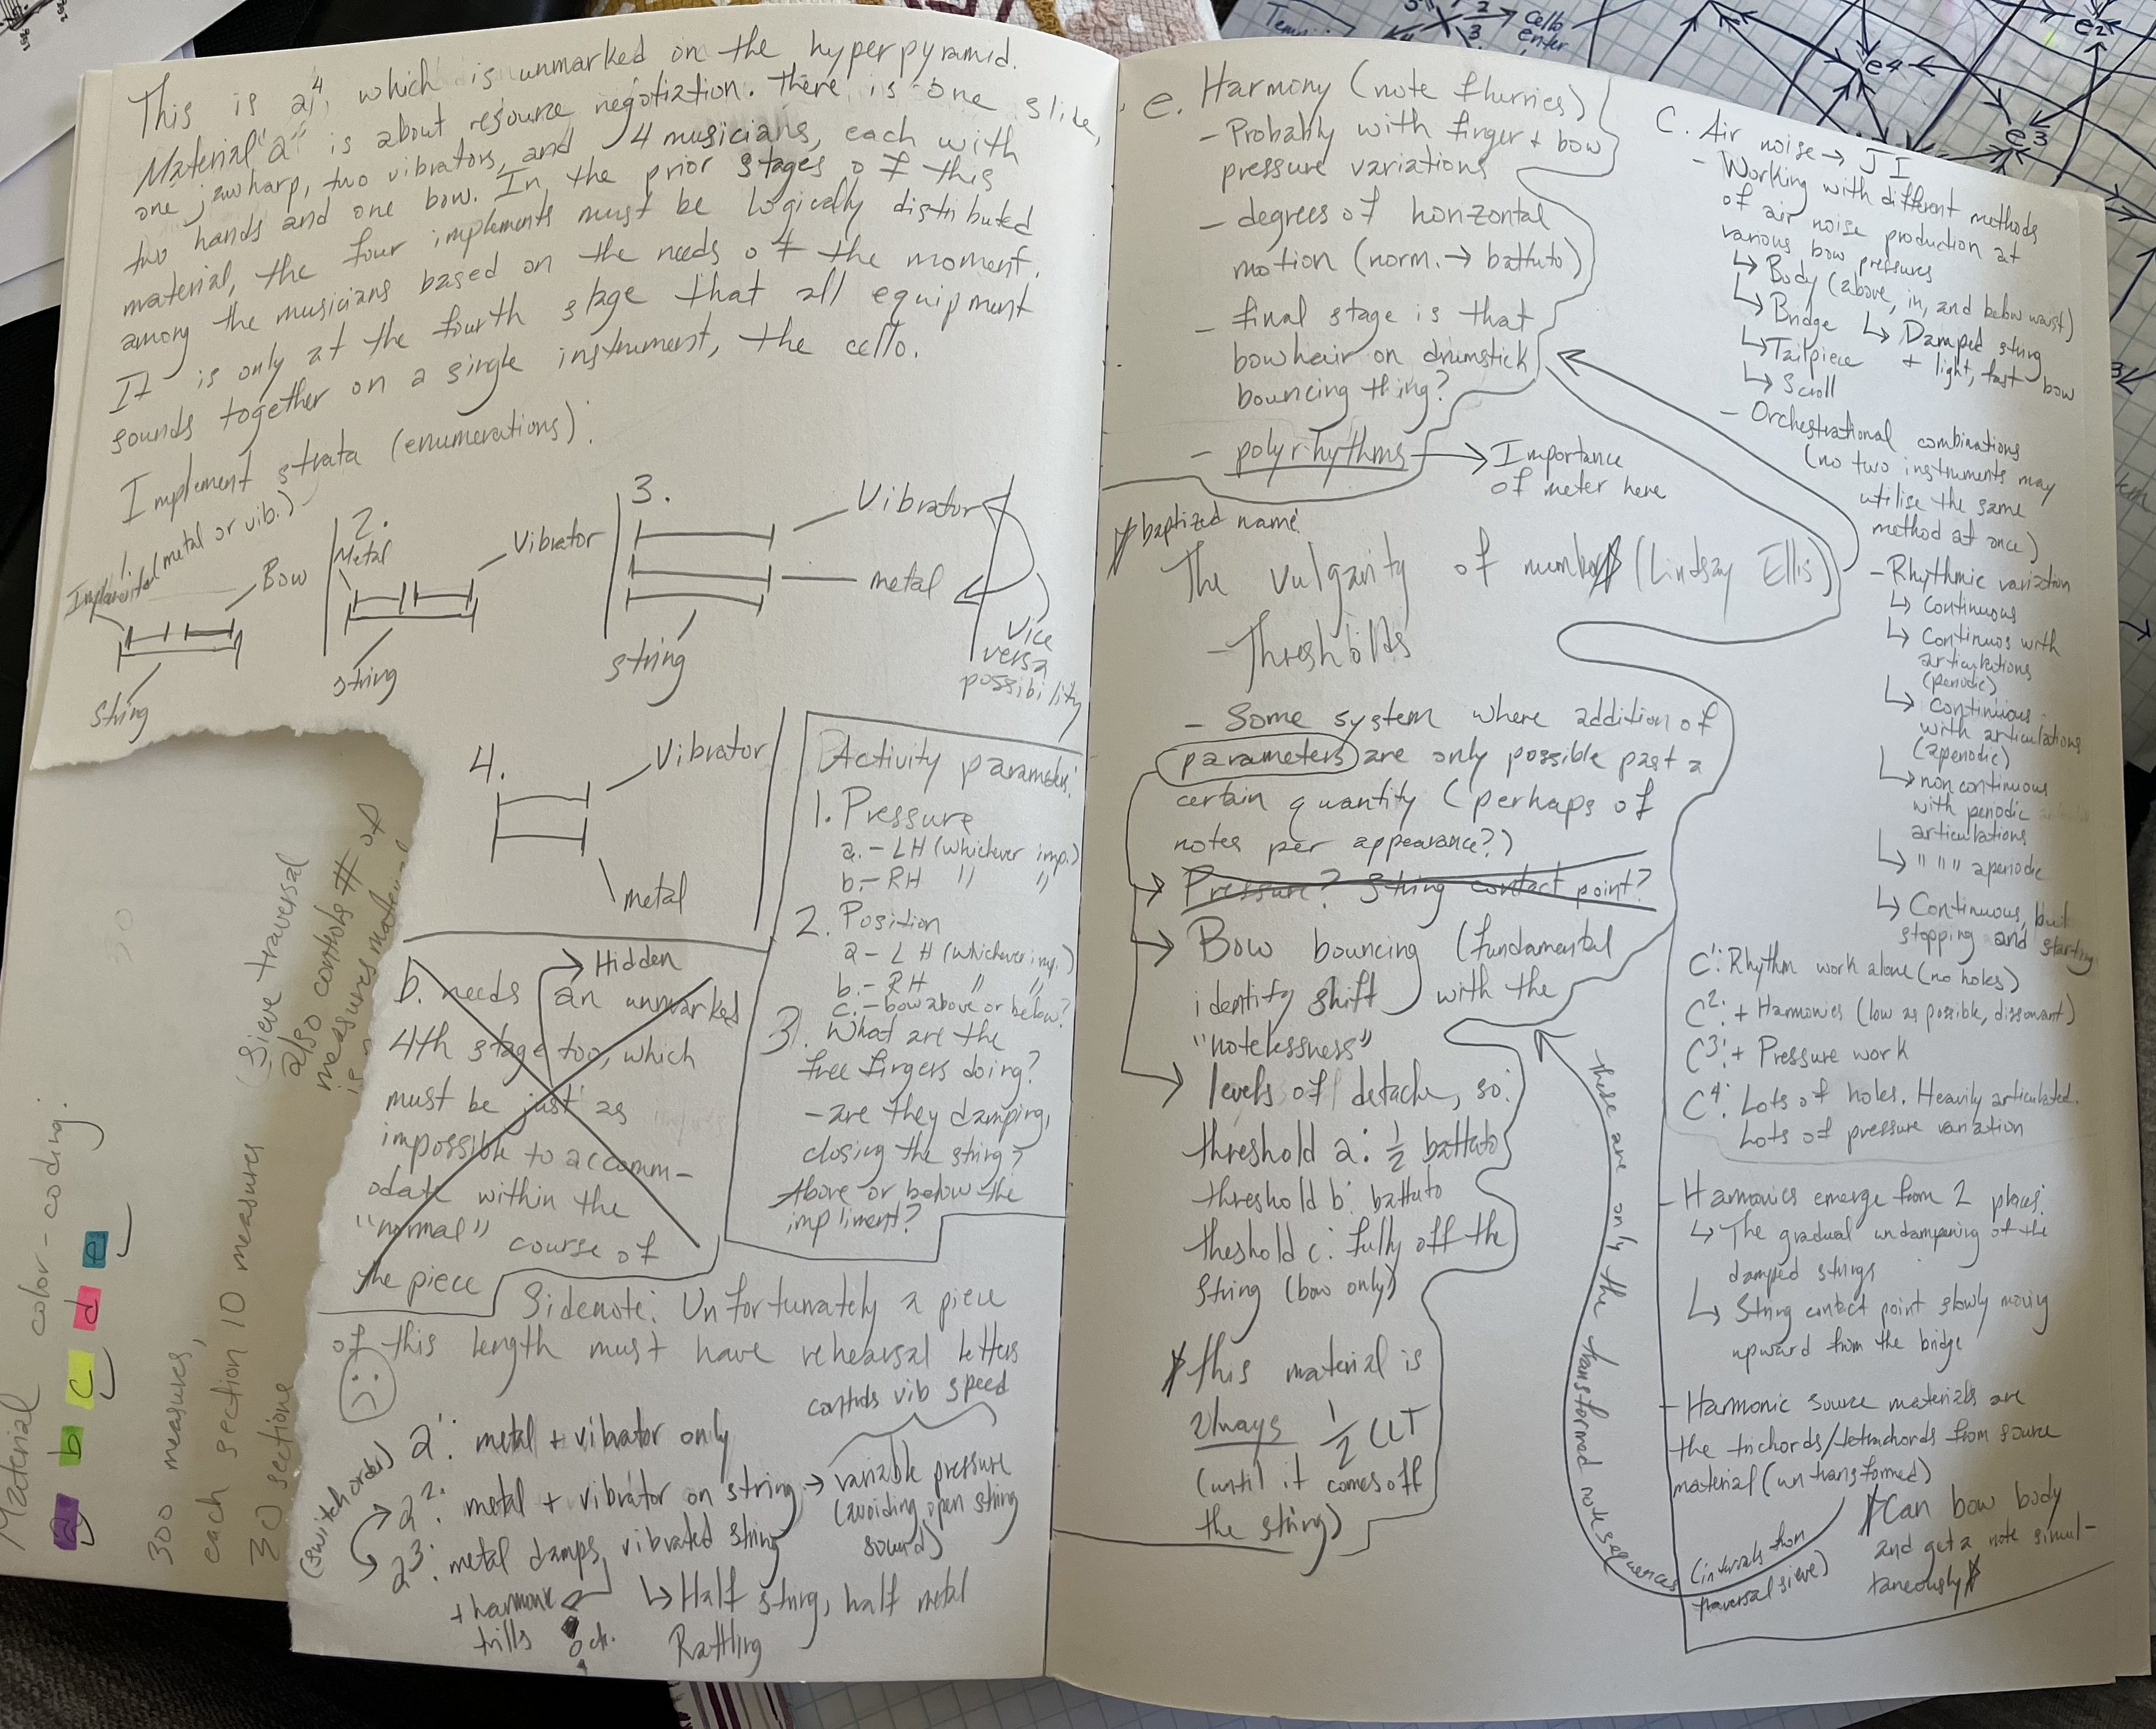 This is a⁴, which is unmarked on the hyperpyramid.
Material "a" is about resource negotiation. There is one slide,
one jawharp, two vibrators, and 4 musicians, each with
two hands and one bow. In the prior stages of this
material, the four implements must be logically distributed
among the musicians based on the needs of the moment.
It is only at the fourth stage that all equipment
sounds together on a single instrument, the cello.
Implement strata (enumerations):
1.
Implement (metal or vib.)
Bow
String
2.
Metal
Vibrator
string
3.
Vibrator
metal
string
vice
versa
possibility
4.
Vibrator
metal
Activity parameters:
1. Pressure
a. - LH (whichever imp.)
b. - RH " "
2. Position
a - LH (whichever imp.)
b. - RH " "
c. - bow above or below?
3. What are the
free fingers doing?
- are they damping,
closing the string?
Above or below the
impliment?
b. needs an unmarked
Hidden
4th stage too, which
must be just as
impossible to accomm-
odate within the
"normal" course of
the piece
Sidenote: Unfortunately a piece
of this length must have rehearsal letters
):
controls vib speed
a¹: metal + vibrator only
(switch order)
a²: metal + vibrator on string → variable pressure
(avoiding open string
sound)
a³: metal damps vibrated string
+ harmonic
trills
↳ Half string, half metal
Rattling
Material color-coding:
a b c d e
300 measures,
each section 10 measures
30 sections
(Sieve traversal
also controls # of
measures material
e. Harmony (note flurries)
- Probably with finger + bow
pressure variations
- degrees of horizontal
motion (norm. → battuto)
- final stage is that
bowhair on drumstick
bouncing thing?
- polyrhythms → Importance
of meter here
baptized name:
The vulgarity of number (Lindsay Ellis)
- Thresholds
- Some system where addition of
parameters are only possible past a
certain quantity (perhaps of
notes per appearance?)
→ Pressure? String contact point?
→ Bow bouncing (fundamental
identity shift with the
"notelessness"
→ levels of detache, so:
threshold a: ½ battuto
threshold b: battuto
theshold c: fully off the
string (bow only)
this material is
always ½ CLT
(until it comes off
the string)
C. Air noise → JI
- Working with different methods
of air noise production at
various bow pressures
↳ Body (above, in, and below waist)
↳ Bridge
↳ Damped string
+ light, fast bow
↳ Tailpiece
↳ Scroll
- Orchestrational combinations
(no two instruments may
utilise the same
method at once)
- Rhythmic variation
↳ Continuous
↳ Continuos with
articulations
(periodic)
↳ continuous
with articulations
(aperiodic)
↳ non continuous
with periodic
articulations
↳ " " " aperiodic
↳ Continuous, but
stopping and starting
C¹: Rhythm work alone (no holes)
C²: + Harmonics (low as possible, dissonant)
C³: + Pressure work
C⁴: Lots of holes. Heavily articulated.
Lots of pressure variation
- Harmonics emerge from 2 places:
↳ The gradual undampening of the
damped strings
↳ String contact point slowly moving
upward from the bridge
- Harmonic source materials are
the trichords/tetrachords from source
material (untransformed)
(intervals from
traversal sieve)
Can bow body
and get a note simul-
taneously
these are only the transformed note sequences
Cello
enter
e4
e3
e2